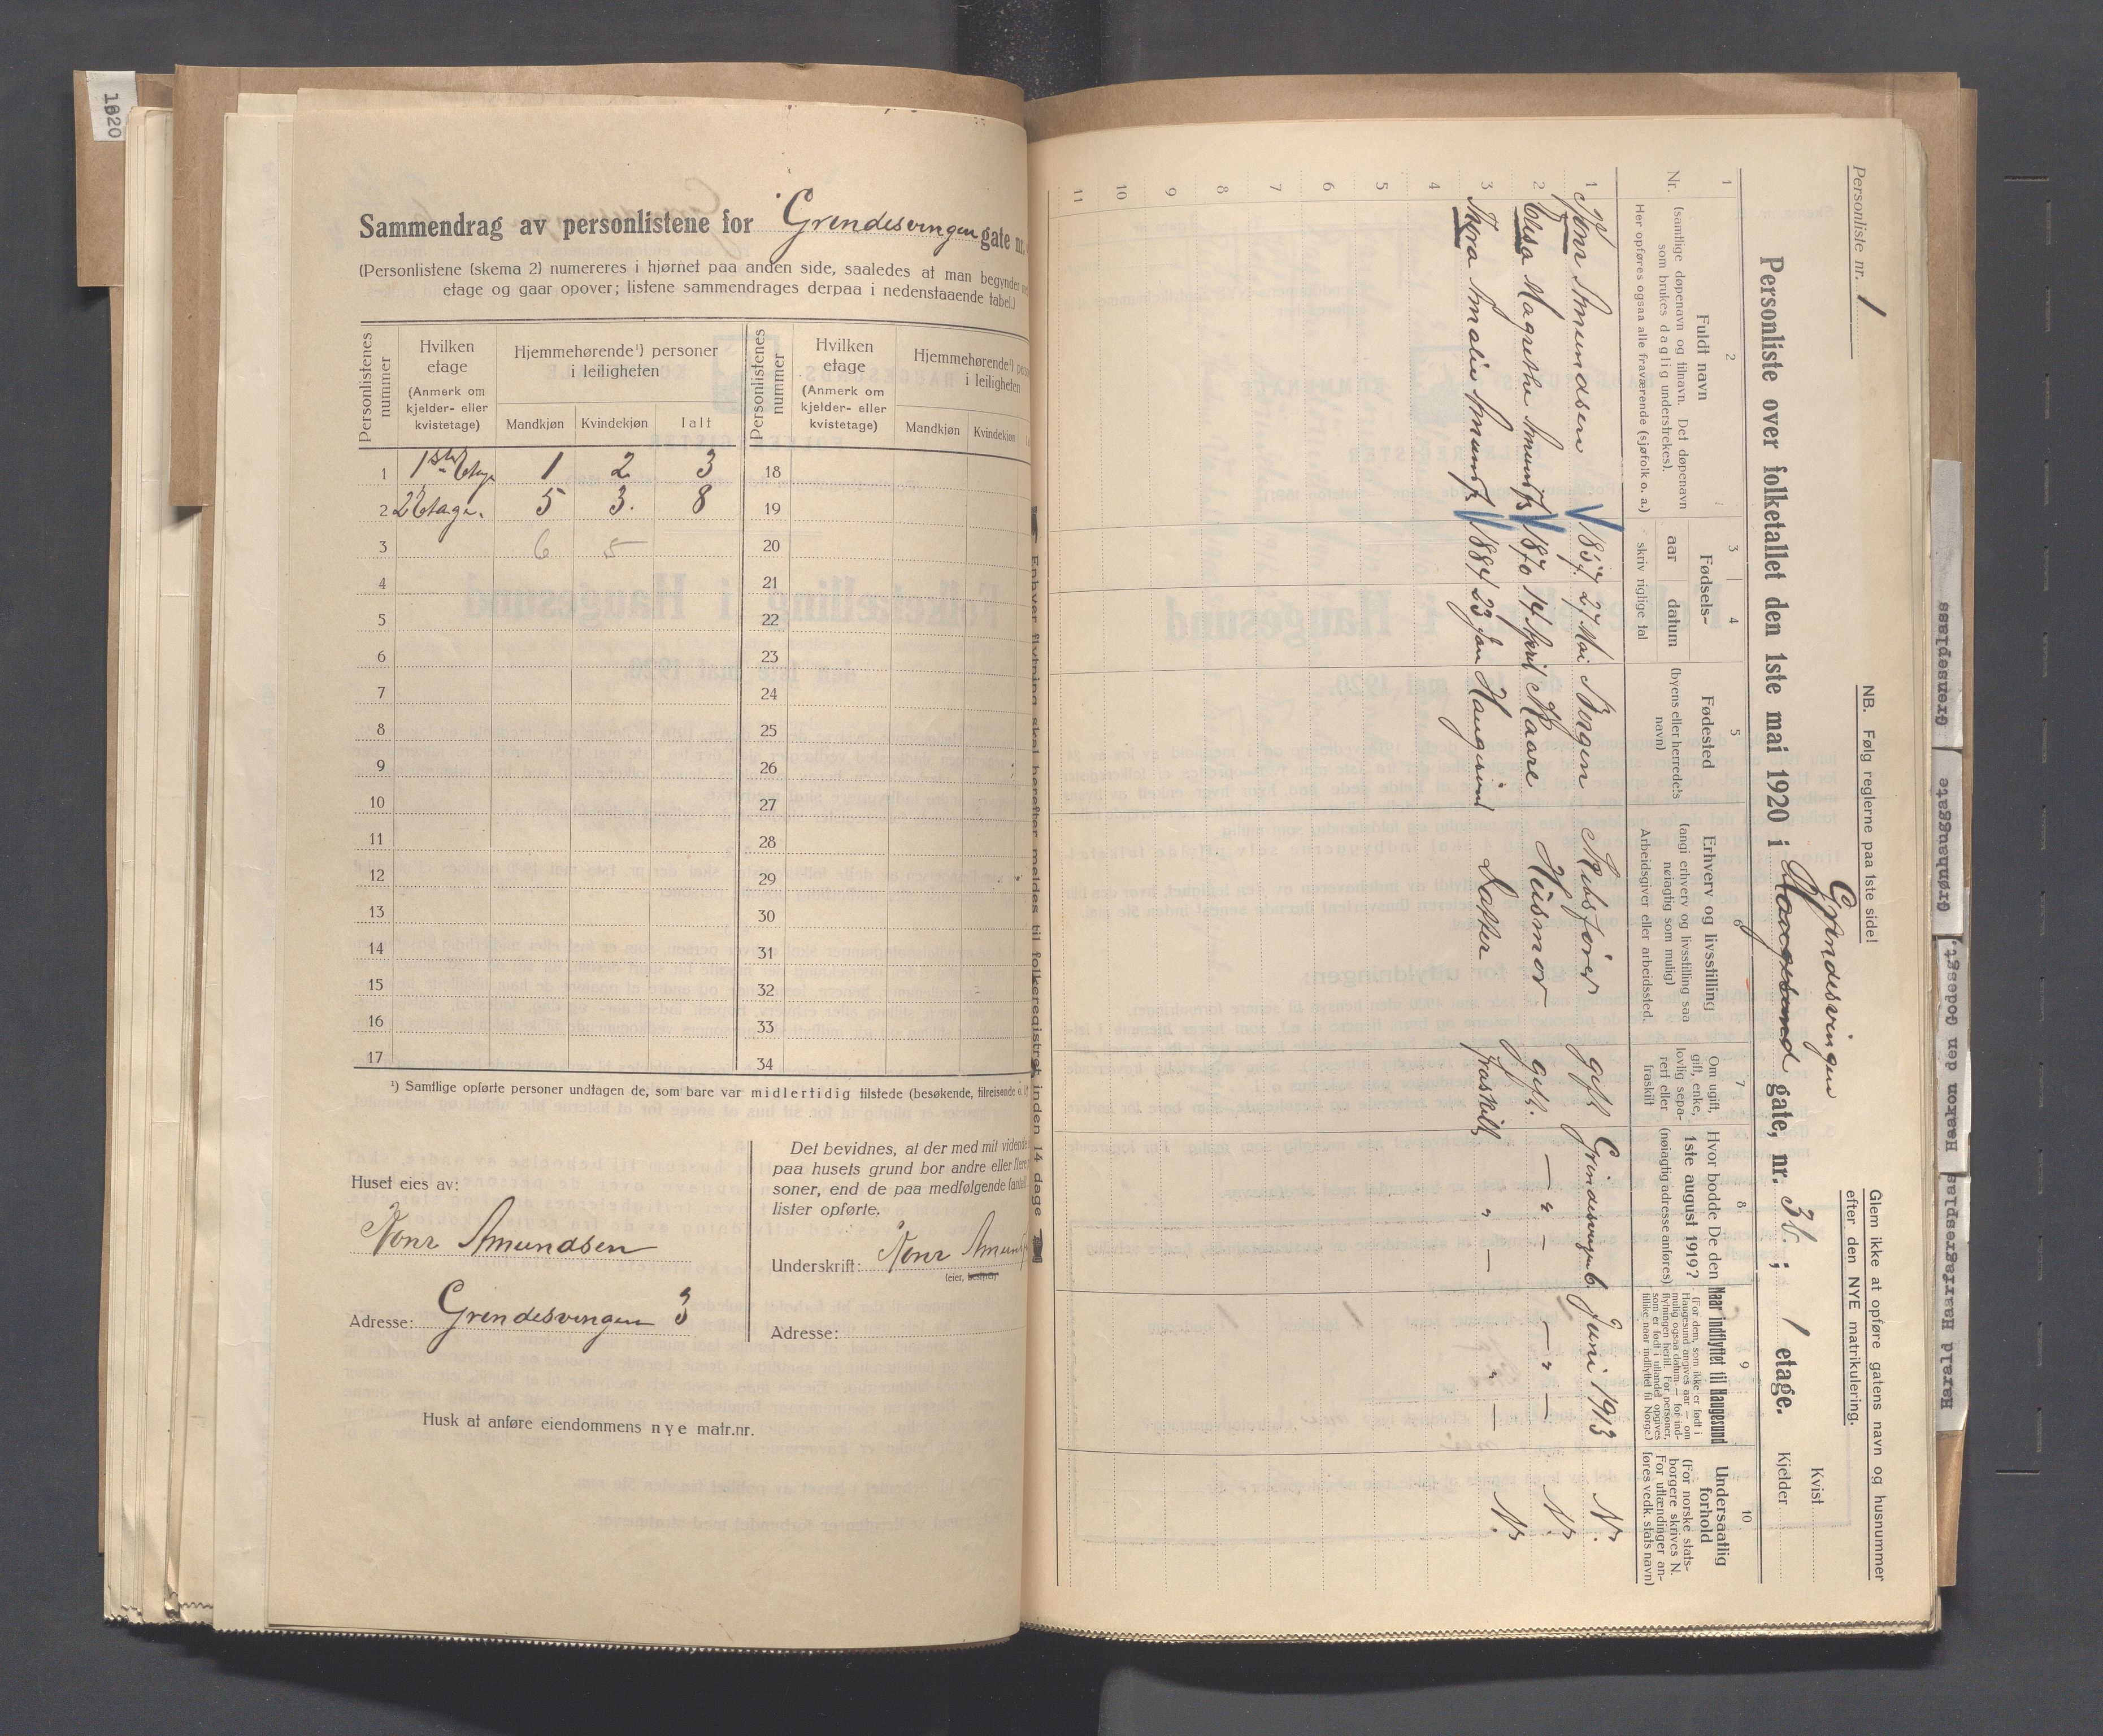 1920
Sammendrag av personlistene for Grendesvingen gate nr.
(Personlistene (skema 2) numereres i hjørnet paa anden side, saaledes at man begynder
etage og gaar opover; listene sammendrages derpaa i nedenstaaende tabel.)
Personlistenes nummer
Hvilken etage (Anmerk om kjelder- eller kvistetage)
Hjemmehørende¹) personer i leiligheten
Mandkjøn Kvindekjøn Ialt
Personlistenes nummer
Hvilken etage (Anmerk om kjelder- eller kvistetage)
Hjemmehørende¹) i leiligheten
Mandkjøn Kvindekjøn
1 1ste Etage 1 2 3 18
2 2 Etage. 5 3. 8 19
3 6 5 20
4 21
5 22
6 23
7 24
8 25
9 26
10 27
11 28
12 29
13 30
14 31
15 32
16 33
17 34
¹) Samtlige opførte personer undtagen de, som bare var midlertidig tilstede (besøkende, tilreisende
Huset eies av:
Amundsen
Adresse: Grendesvingen 3
Det bevidnes, at der med mit vidende
paa husets grund bor andre eller flere
soner, end de paa medfølgende (antal
lister opførte.
Underskrift:
(eier, bestyrer)
Adresse:
Husk at anføre eiendommens nye matr.nr.
Enhver flytning skal herefter meldes til folkeregistret inden 14 dage
Personliste nr. 1
NB. Følg reglerne paa 1ste side!
Glem ikke at opføre gatens navn og husnummer
efter den NYE matrikulering.
Grendesvingen
Personliste over folketallet den 1ste mai 1920 i Haugesund gate, nr. 3b; 1 etage.
Kvist
Kjelder
1 2 3 4 5 6 7 8 9 10
Nr.
Fuldt navn
(samtlige døpenavn og tilnavn. Det døpenavn
som brukes daglig understrekes).
Her opføres ogsaa alle fraværende (sjøfolk o. a.)
Fødsels-
aar datum
skriv rigtige tal
Fødested
(byens eller herredets
navn)
Erhverv og livsstilling
(angi erhverv og livsstilling saa
nøiagtig som mulig)
Arbeidsgiver eller arbeidssted.
Om ugift,
gift, enke,
lovlig sepa-
rert eller
fraskilt
Hvor bodde De den
1ste august 1919?
(nøiagtig adresse anføres)
Naar indflyttet til Haugesund
(For dem, som ikke er født i
Haugesund angives aar — om
mulig ogsaa datum — for ind-
flytningen hertil. For personer,
som er født i utlandet opgives
tillike naar indflyttet til Norge.)
Undersaatlig
forhold
(For norske stats-
borgere skrives N.
For utlændinger an-
føres vedk. stats navn)
1 Amundsen 1857 27 Mai Bergen Skibsfører gift Grindesvingen 6 Juni 1913 N.
2 Elisa Magrethe 1870 14 April Skaare Husmor gift. — " — — " — N.
3 Thora Amalie 1884 23 Jan Haugesund Datter fraskilt " — " — N.
4
5
6
7
8
9
10
11
Grønseplass
Grønhauggate
Haakon den Godesgt.
Harald Haarfagresplas